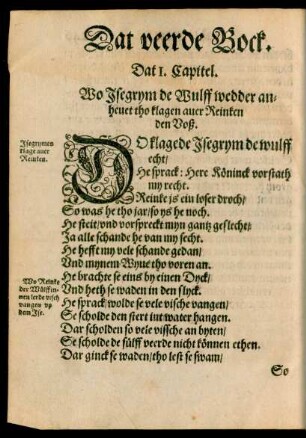 Dat veerde Boek.
Dat I. Capitel.
Wo Jsegrym de Wulff wedder an-
heuet tho klagen auer Reinken
den Voß.
Jsegrymen
klage auer
Reinken.
DO klagede Jsegrym de wulff
echt/
He sprack: Here Köninck vorstath
my recht.
Reinke ys ein loser droch/
So was he tho jar/so ys he noch.
He steit/vnd vorspreckt myn gantz geslecht/
Ja alle schande he van my secht.
He hefft my vele schande gedan/
Vnd mynem Wyue tho voren an.
He brachte se eins by einen Dyck/
Vnd heth se waden in den slyck.
Wo Reinke
der Wülffin-
nen lerde visch
vangen vp
dem Jse.
He sprack/wolde se vele vische vangen/
Se scholde den stert int water hangen.
Dar scholden so vele vissche an byten/
Se scholde de sülff veerde nicht können ethen.
Dar ginck se waden/tho lest se swam/
So